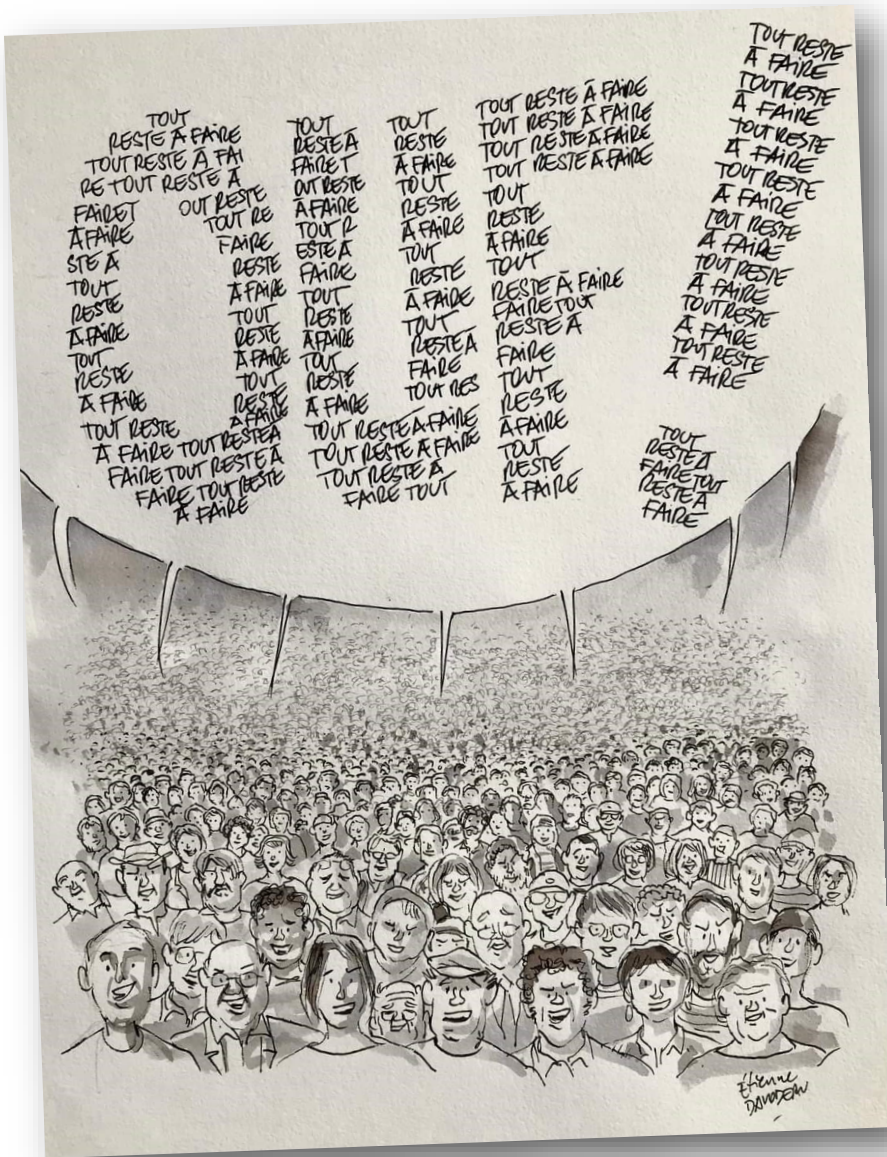 TOUT
RESTE À FAIRE
TOUT RESTE À FAI
RE TOUT RESTE À
FAIRET OUT RESTE
À FAIRE TOUT RE
STE À FAIRE
TOUT RESTE
RESTE À FAIRE
À FAIRE TOUT
TOUT RESTE
RESTE À FAIRE
À FAIRE TOUT
TOUT RESTE RESTE
À FAIRE
À FAIRE TOUT RESTE À
FAIRE TOUT RESTE À
FAIRE TOUT RESTE
À FAIRE
TOUT TOUT
RESTE À RESTE
FAIRE T À FAIRE
OUT RESTE TOUT
À FAIRE RESTE
TOUT R À FAIRE
ESTE À TOUT
FAIRE RESTE
TOUT À FAIRE
RESTE TOUT
À FAIRE RESTE À
TOUT FAIRE
RESTE TOUT RES
À FAIRE
TOUT RESTE À FAIRE
TOUT RESTE À FAIRE
TOUT RESTE À
FAIRE TOUT
TOUT RESTE À FAIRE
TOUT RESTE À FAIRE
TOUT RESTE À FAIRE
TOUT RESTE À FAIRE
TOUT
RESTE
À FAIRE
TOUT
RESTE À FAIRE
FAIRE TOUT
RESTE À
FAIRE
TOUT
RESTE
À FAIRE
TOUT
RESTE
À FAIRE
TOUT RESTE
À FAIRE
TOUT RESTE
À FAIRE
TOUT RESTE
À FAIRE
TOUT RESTE
À FAIRE
TOUT RESTE
À FAIRE
TOUT RESTE
À FAIRE
TOUT RESTE
À FAIRE
TOUT RESTE
À FAIRE
TOUT
RESTE À
FAIRE TOUT
RESTE À
FAIRE
Étienne
DAVODEAU